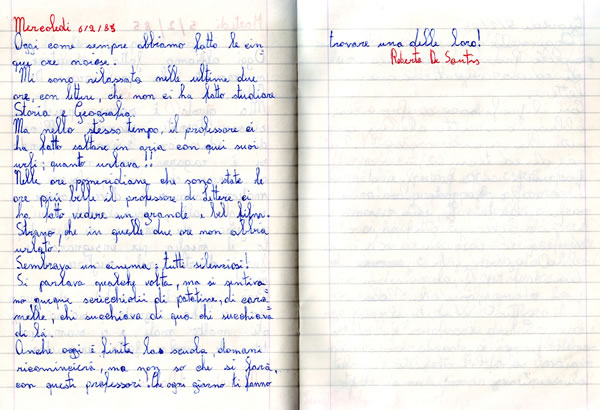 Mercoledì 6/2/85
Oggi come sempre abbiamo fatto le cin
que ore noiose.
Mi sono rilassata nelle ultime due
ore, con lettere, che non ci ha fatto studiare
Storia e Geografia.
Ma nello stesso tempo, il professore ci
ha fatto saltare in aria con qui suoi
urli; quanto urlava!!
Nelle ore pomeridiane che sono state le
ore più belle il professore di Lettere ci
ha fatto vedere un grande e bel film.
Strano, che in quelle due ore non abbia
urlato!
Sembrava un cinema: tutti silenziosi!
Si parlava qualche volta, ma si sentiva
no ovunque scricchiolii di patatine, di cara=
melle, chi succhiava di qua chi succhiava
di là.
Anche oggi è finita la scuola, domani
ricomincierà, ma non so che si farà,
con questi professori! Che ogni giorno ti fanno
trovare una delle loro!
Roberta De Santis